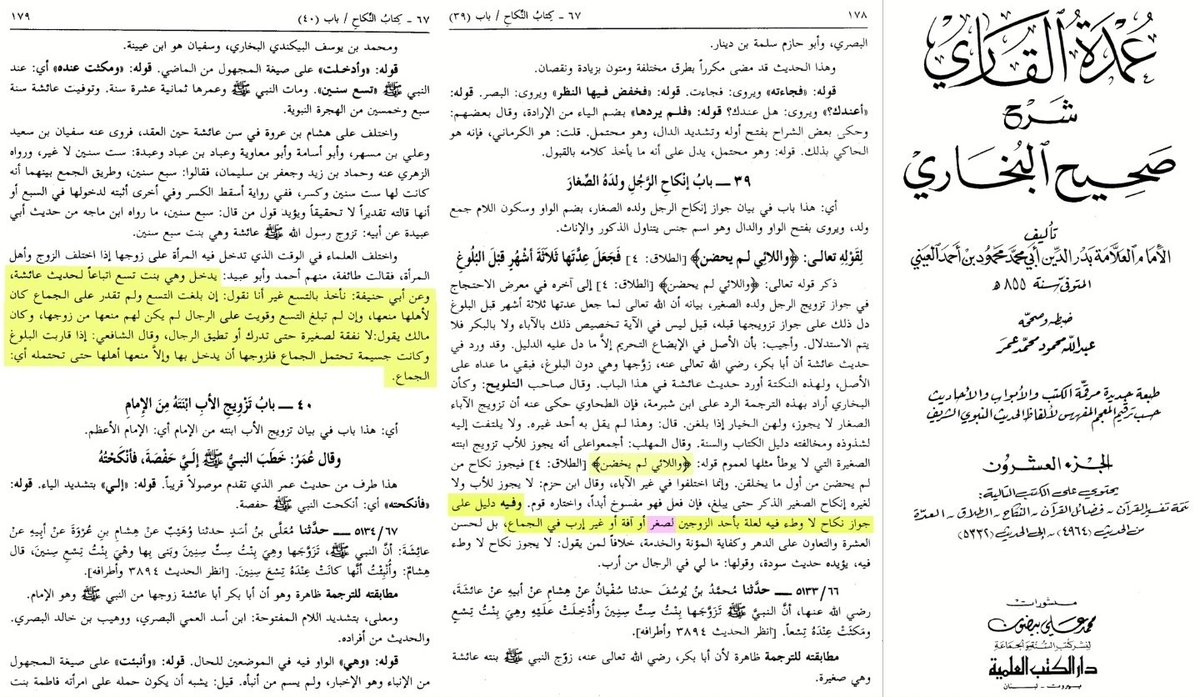 عُمْدَةُ القَارِي
شَرْحُ
صَحِيحِ البُخَارِي
تأليف
الإمام العلّامة بدر الدين أبي محمد محمود بن أحمد العيني
المتوفى سنة ٨٥٥ هـ
ضبطه وصححه
عبد الله محمود محمد عمر
طبعة جديدة مرقمة الكتب والأبواب والأحاديث
حسب ترقيم المعجم المفهرس لألفاظ الحديث النبوي الشريف
الجزء العشرون
يحتوي على الكتب التالية:
تتمة تفسير القرآن - فضائل القرآن - النكاح - الطلاق - العدة
من الحديث (٤٩٦٤) - إلى الحديث (٥٣٢٢)
منشورات
محمد علي بيضون
لنشر كتب السنة والجماعة
دار الكتب العلمية
بيروت - لبنان
١٧٨
٦٧ ـ كِتابُ النِّكاحِ / باب (٣٩)
البصري، وأبو حازم سلمة بن دينار.
وهذا الحديث قد مضى مكرراً بطرق مختلفة ومتون بزيادة ونقصان.
قوله: «فجاءته» ويروى: فجاءت. قوله: «فخفض فيها النظر» ويروى: البصر. قوله:
«أعندك؟» ويروى: هل عندك؟ قوله: «فلم يردها» بضم الياء من الإرادة، وقال بعضهم:
وحكى بعض الشراح بفتح أوله وتشديد الدال، وهو محتمل. قلت: هو الكرماني، فإنه هو
الحاكي بذلك. قوله: وهو محتمل، يدل على أنه ما يأخذ كلامه بالقبول.
٣٩ ـــ بابُ إنْكاحِ الرَّجُلِ ولدَهُ الصِّغارَ
أي: هذا باب في بيان جواز إنكاح الرجل ولده الصغار، بضم الواو وسكون اللام جمع
ولد، ويروى بفتح الواو والدال وهو اسم جنس يتناول الذكور والإناث.
لِقَوْلِهِ تعالى: ﴿واللائي لم يحضن﴾ [الطلاق: ٤] فَجَعَلَ عِدَّتَها ثَلاثَةَ أشْهُرٍ قَبْلَ البُلُوغِ
ذكر قوله تعالى: ﴿واللائي لم يحضن﴾ [الطلاق: ٤] إلى آخره في معرض الاحتجاج
في جواز تزويج الرجل ولده الصغير، بيانه أن الله تعالى لما جعل عدتها ثلاثة أشهر قبل البلوغ
دل ذلك على جواز تزويجها قبله، قيل ليس في الآية تخصيص ذلك بالآباء ولا بالبكر فلا
يتم الاستدلال. وأجيب: بأن الأصل في الإبضاع التحريم إلاَّ ما دل عليه الدليل. وقد ورد في
حديث عائشة أن أبا بكر، رضي الله تعالى عنه، زوَّجها وهي دون البلوغ، فبقي ما عداه على
الأصل، ولهذه النكتة أورد حديث عائشة في هذا الباب. وقال صاحب التلويح: وكأن
البخاري أراد بهذه الترجمة الرد على ابن شبرمة، فإن الطحاوي حكى عنه أن تزويج الآباء
الصغار لا يجوز، ولهن الخيار إذا بلغن. قال: وهذا لم يقل به أحد غيره. ولا يلتفت إليه
لشذوذه ومخالفته دليل الكتاب والسنة. وقال المهلب: أجمعوا على أنه يجوز للأب تزويج ابنته
الصغيرة التي لا يوطأ مثلها لعموم قوله: ﴿واللائي لم يحضن﴾ [الطلاق: ٤] فيجوز نكاح من
لم يحضن من أول ما يخلقن. وإنما اختلفوا في غير الآباء، وقال ابن حزم: لا يجوز للأب ولا
لغيره إنكاح الصغير الذكر حتى يبلغ، فإن فعل فهو مفسوخ أبداً، واختاره قوم. وفيه دليل على
جواز نكاح لا وطء فيه لعلة بأحد الزوجين لصغر أو آفة أو غير إرب في الجماع، بل لحسن
العشرة والتعاون على الدهر وكفاية المؤنة والخدمة، خلافاً لمن يقول: لا يجوز نكاح لا وطء
فيه، يؤيده حديث سودة، وقولها: ما لي في الرجال من أرب.
٥١٣٣/٦٦ ـــ حدَّثنا مُحَمَّدُ بنُ يُوسُفَ حدثنا سُفْيانُ عنْ هِشامٍ عنْ أبِيهِ عنْ عائِشَةَ،
رضي الله عنها، أنَّ النبيَّ ﷺ تَزَوَّجَها وهِيَ بِنْتُ سِتِّ سِنِينَ وأُدْخِلَتْ عَلَيْهِ وهِيَ بِنْتُ تِسْعٍ
ومَكَثَتْ عِنْدَهُ تِسْعاً. [انظر الحديث ٣٨٩٤ وأطرافه].
مطابقته للترجمة ظاهرة لأن أبا بكر، رضي الله تعالى عنه، زوّج النبي ﷺ بنته عائشة
وهي صغيرة.
٦٧ ـ كِتابُ النِّكاحِ / باب (٤٠)
١٧٩
ومحمد بن يوسف البيكندي البخاري، وسفيان هو ابن عيينة.
قوله: «وأدخلت» على صيغة المجهول من الماضي. قوله: «ومكثت عنده» أي: عند
النبي ﷺ «تسع سنين». ومات النبي ﷺ وعمرها ثمانية عشرة سنة. وتوفيت عائشة سنة
سبع وخمسين من الهجرة النبوية.
واختلف على هشام بن عروة في سن عائشة حين العقد، فروى عنه سفيان بن سعيد
وعلي بن مسهر، وأبو أسامة وأبو معاوية وعباد بن عباد وعبدة: ست سنين لا غير، ورواه
الزهري عنه وحماد بن زيد وجعفر بن سليمان، فقالوا: سبع سنين، وطريق الجمع بينهما أنه
كانت لها ست سنين وكسر، ففي رواية أسقط الكسر وفي أخرى أثبته لدخولها في السبع أو
أنها قالته تقديراً لا تحقيقاً ويؤيد قول من قال: سبع سنين، ما رواه ابن ماجه من حديث أبي
عبيدة عن أبيه: تزوج رسول الله ﷺ عائشة وهي بنت سبع سنين.
واختلف العلماء في الوقت الذي تدخل فيه المرأة على زوجها إذا اختلف الزوج وأهل
المرأة، فقالت طائفة، منهم أحمد وأبو عبيد: يدخل وهي بنت تسع اتباعاً لحديث عائشة،
وعن أبي حنيفة: نأخذ بالتسع غير أنا نقول: إن بلغت التسع ولم تقدر على الجماع كان
لأهلها منعها، وإن لم تبلغ التسع وقويت على الرجال لم يكن لهم منعها من زوجها، وكان
مالك يقول: لا نفقة لصغيرة حتى تدرك أو تطيق الرجال، وقال الشافعي: إذا قاربت البلوغ
وكانت جسيمة تحتمل الجماع فلزوجها أن يدخل بها وإلاَّ منعها أهلها حتى تحتمله أي:
الجماع.
٤٠ ـــ بابُ تَزْوِيجِ الأبِ ابْنَتَهُ مِنَ الإمامِ
أي: هذا باب في بيان تزويج الأب ابنته من الإمام أي: الإمام الأعظم.
وقال عُمَرُ: خَطَبَ النبيُّ ﷺ إلَيَّ حَفْصَةَ، فأنْكَحْتُهُ
هذا طرف من حديث عمر الذي تقدم موصولاً قريباً. قوله: «إليّ» بتشديد الياء. قوله:
«فأنكحته» أي: أنكحت النبي ﷺ حفصة.
٥١٣٤/٦٧ ـــ حدَّثنا مُعَلَّى بنُ أسَدٍ حدَّثنا وُهَيْبٌ عنْ هِشامِ بنِ عُرْوَةَ عنْ أبِيهِ عنْ
عائِشَةَ: أنَّ النبيَّ ﷺ، تَزَوَّجَها وهِيَ بِنْتُ سِتِّ سِنِينَ وبَنى بِها وهْيَ بِنْتُ تِسْعِ سِنِينَ، قال
هِشامٌ: وأُنْبِئْتُ أنَّها كانَتْ عِنْدَهُ تِسْعَ سِنِينَ. [انظر الحديث ٣٨٩٤ وأطرافه].
مطابقته للترجمة ظاهرة وهو أن أبا بكر أبا عائشة زوجها من النبي ﷺ وهو الإمام.
ومعلى، بتشديد اللام المفتوحة: ابن أسد العمي البصري، ووهيب بن خالد البصري.
والحديث من أفراده.
قوله: «وهي» الواو فيه في الموضعين للحال. قوله: «وأنبئت» على صيغة المجهول
من الإنباء وهو الإخبار، ولم يسم من أنبأه. قيل: يشبه أن يكون حمله على امرأته فاطمة بنت